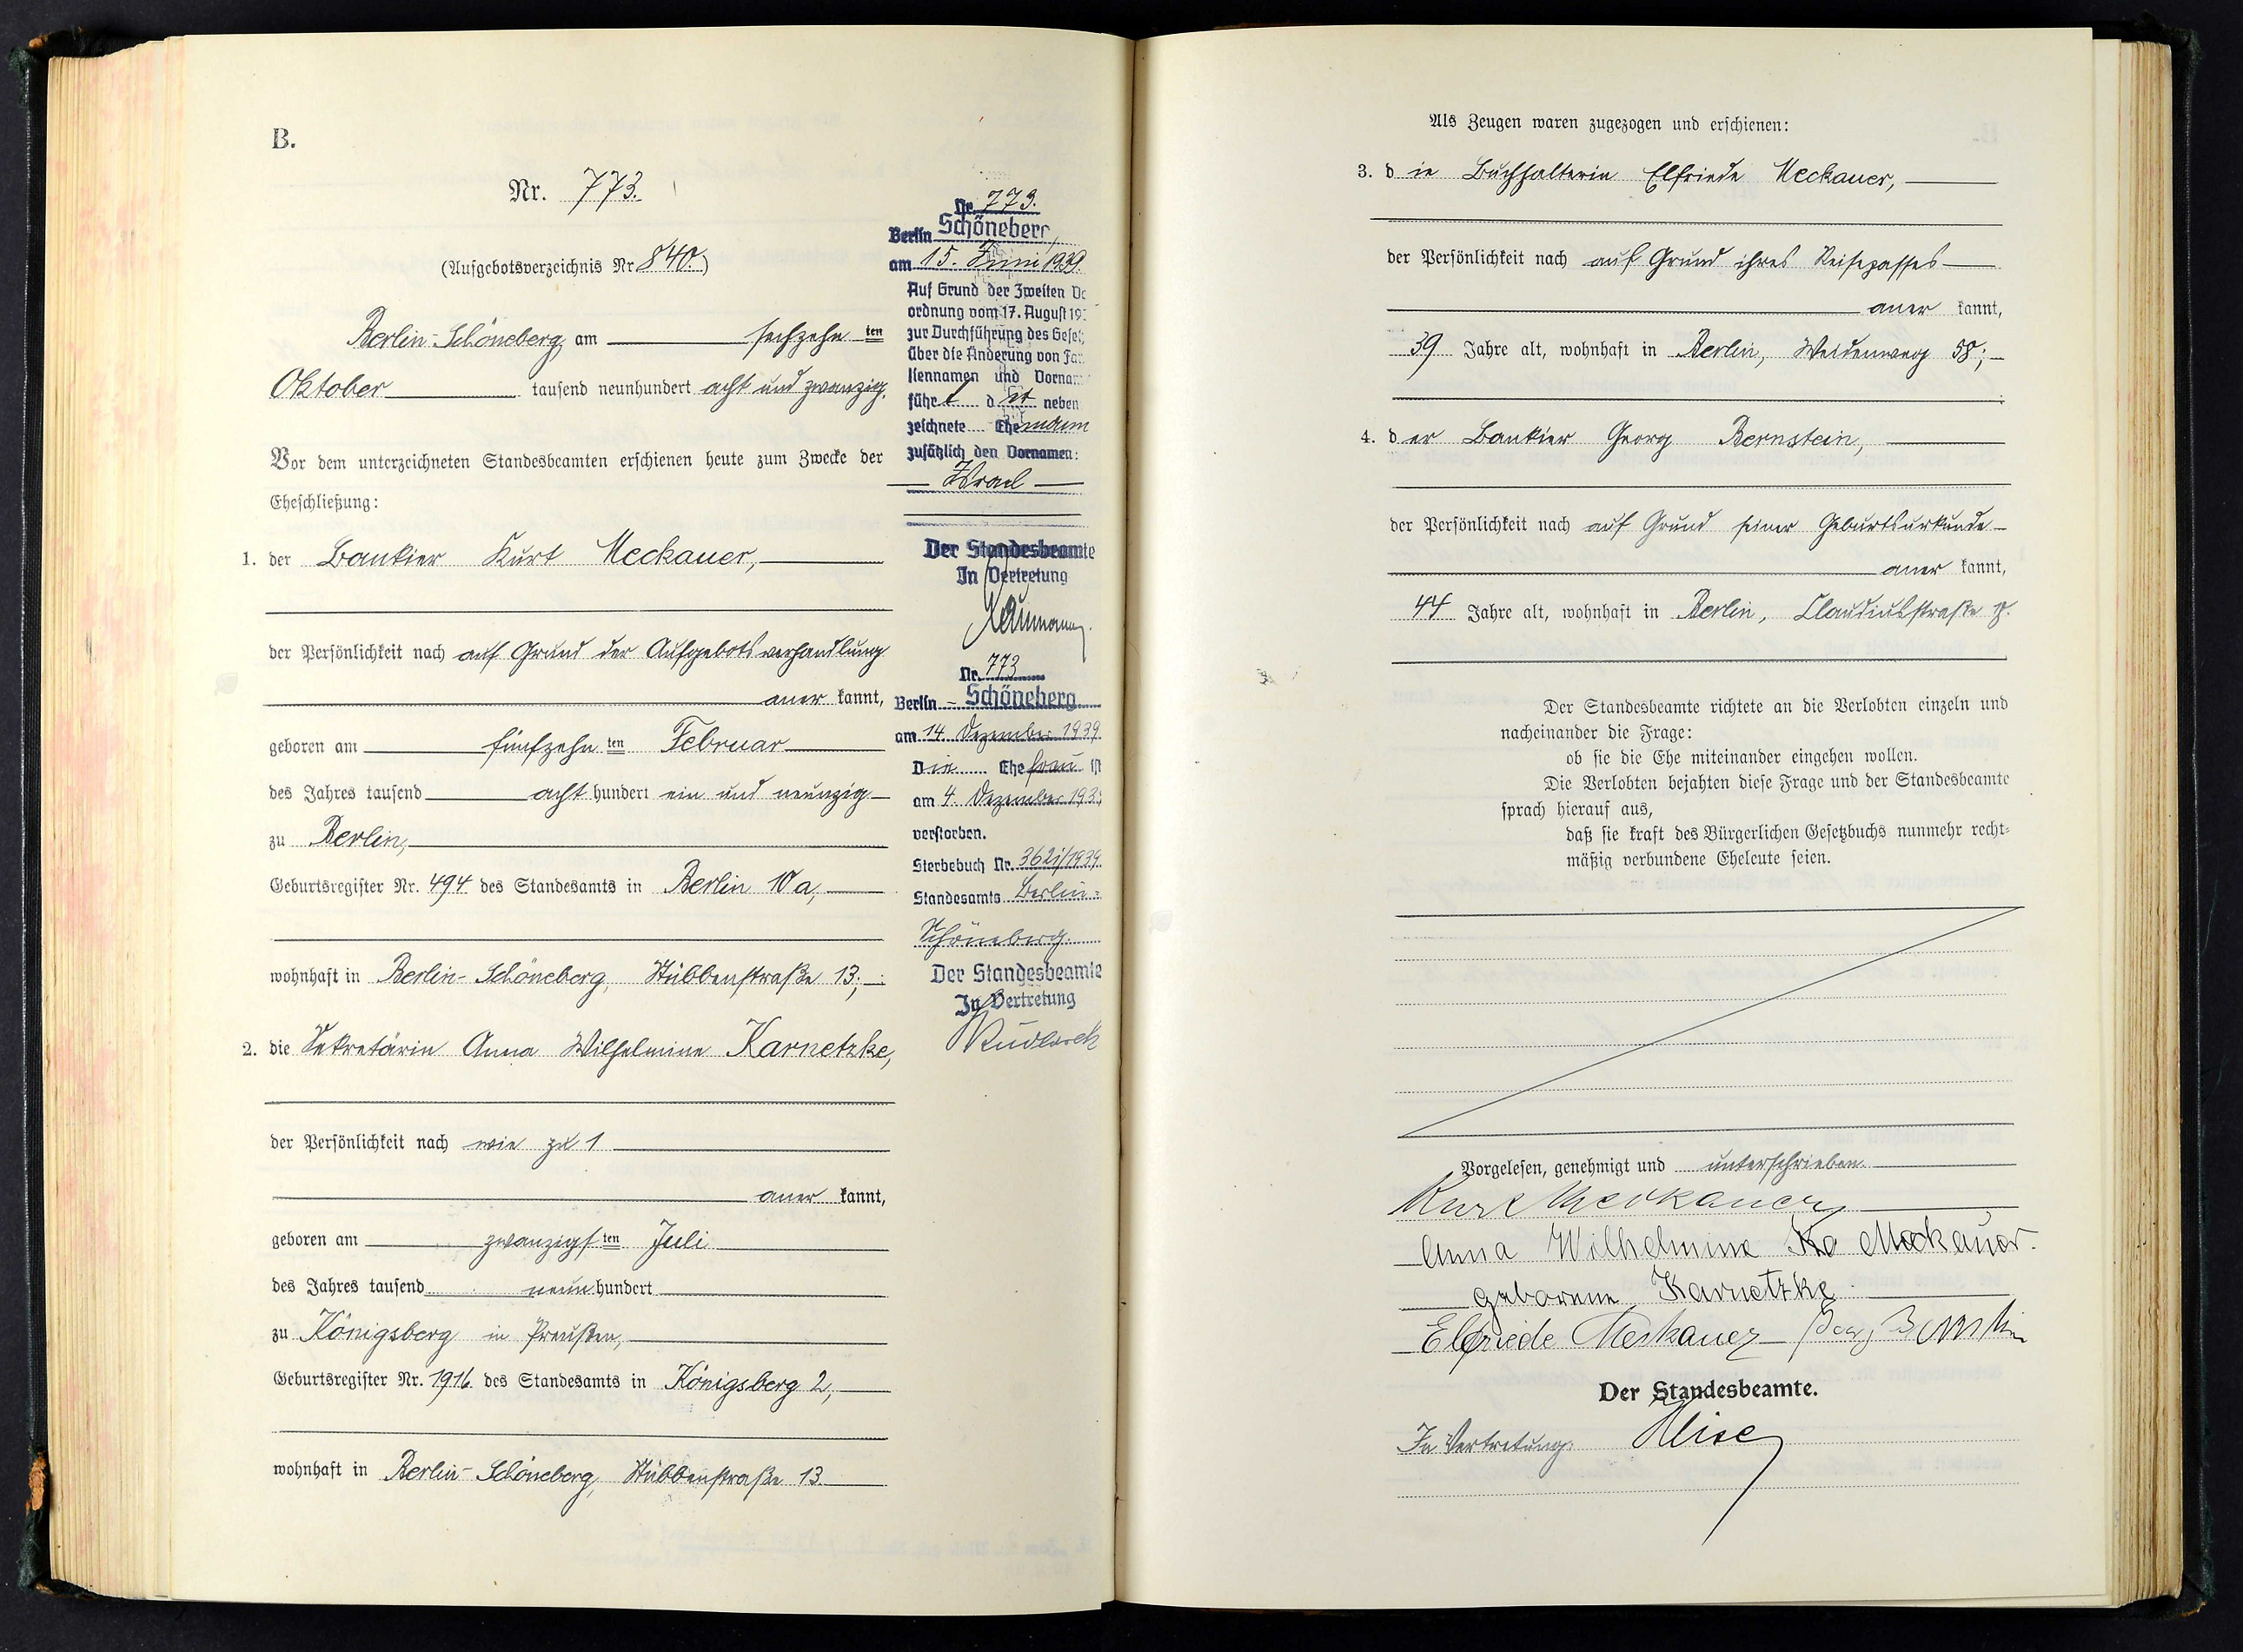 B.
Nr. 773.
(Aufgebotsverzeichnis Nr 840.)
Berlin-Schöneberg, am sechzehn ten
Oktober tausend neunhundert acht und zwanzig.
Vor dem unterzeichneten Standesbeamten erschienen heute zum Zwecke der
Eheschließung:
1. der Bankier Kurt Meckauer,
der Persönlichkeit nach auf Grund der Aufgebotsverhandlung
aner kannt,
geboren am fünfzehn ten Februar
des Jahres tausend acht hundert ein und neunzig
zu Berlin,
Geburtsregister Nr. 494 des Standesamts in Berlin 10a,
wohnhaft in Berlin-Schöneberg, Stübbenstraße 13;
2. die Sekretärin Anna Wilhelmine Karnetzke,
der Persönlichkeit nach wie zu 1
aner kannt,
geboren am zwanzigs ten Juli
des Jahres tausend neun hundert
zu Königsberg in Preußen,
Geburtsregister Nr. 1916. des Standesamts in Königsberg 2,
wohnhaft in Berlin-Schöneberg, Stübbenstraße 13.
Nr. 773.
Berlin Schöneberg
am 15. Juni 1939.
Auf Grund der Zweiten
ordnung vom 17. August
zur Durchführung des
über die Änderung von
liennamen und
führ t d er neben
zeichnete Ehe mann
zusätzlich den Vornamen:
Israel
Der Standesbeamte
In Vertretung
Neumann.
Nr. 773
Berlin - Schöneberg
am 14. Dezember 1939.
Die Ehe frau ist
am 4. Dezember
verstorben.
Sterbebuch Nr.
Standesamts Berlin-
Schöneberg.
Der Standesbeamte
In Vertretung
Als Zeugen waren zugezogen und erschienen:
3. d ie Buchhalterin Elfriede Meckauer,
der Persönlichkeit nach auf Grund ihres Reisepasses
aner kannt,
39 Jahre alt, wohnhaft in Berlin, Weidenweg 58;
4. d er Bankier Georg Bernstein,
der Persönlichkeit nach auf Grund seiner Geburtsurkunde
aner kannt,
44 Jahre alt, wohnhaft in Berlin, Claudiusstraße
Der Standesbeamte richtete an die Verlobten einzeln und
nacheinander die Frage:
ob sie die Ehe miteinander eingehen wollen.
Die Verlobten bejahten diese Frage und der Standesbeamte
sprach hierauf aus,
daß sie kraft des Bürgerlichen Gesetzbuchs nunmehr recht-
mäßig verbundene Eheleute seien.
Vorgelesen, genehmigt und unterschrieben.
Kurt Meckauer
Anna Wilhelmine Ka Meckauer.
geborene Karnetzke
Elfriede Meckauer Georg Bernstein
Der Standesbeamte.
In Vertretung: